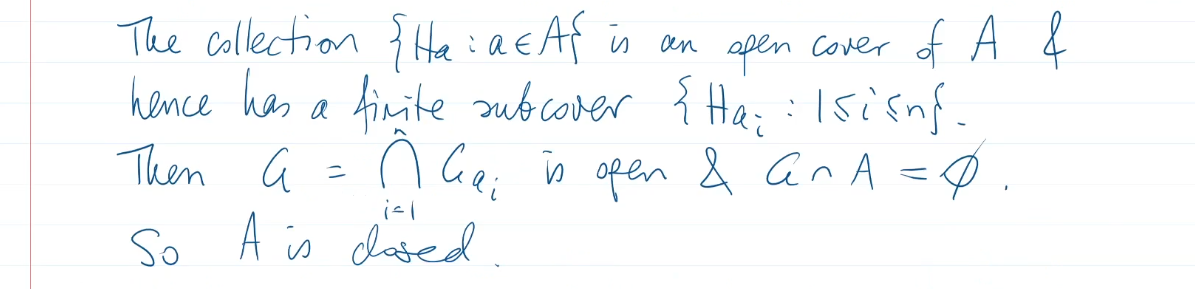 The collection {Ha : a ∈ A} is an open cover of A &
hence has a finite subcover {Haᵢ : 1 ≤ i ≤ n}.
Then G = ⋂ⁿᵢ₌₁ Gaᵢ is open & G ∩ A = ∅.
So A is closed.